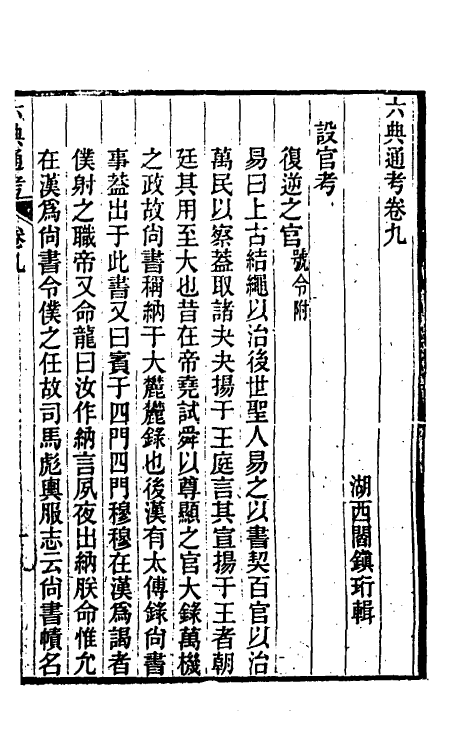 六典通考卷九
湖西閻鎮珩輯
設官考
復逆之官號令附
易曰上古結繩以治後世聖人易之以書契百官以治
萬民以察葢取諸夬夬揚于王庭言其宣揚于王者朝
廷其用至大也昔在帝堯試舜以尊顯之官大錄萬機
之政故尚書稱納于大麓麓錄也後漢有太傅錄尚書
事葢出于此書又曰賓于四門四門穆穆在漢爲謁者
僕射之職帝又命龍曰汝作納言夙夜出納朕命惟允
在漢爲尚書令僕之任故司馬彪輿服志云尚書幘名
六典通考 卷九